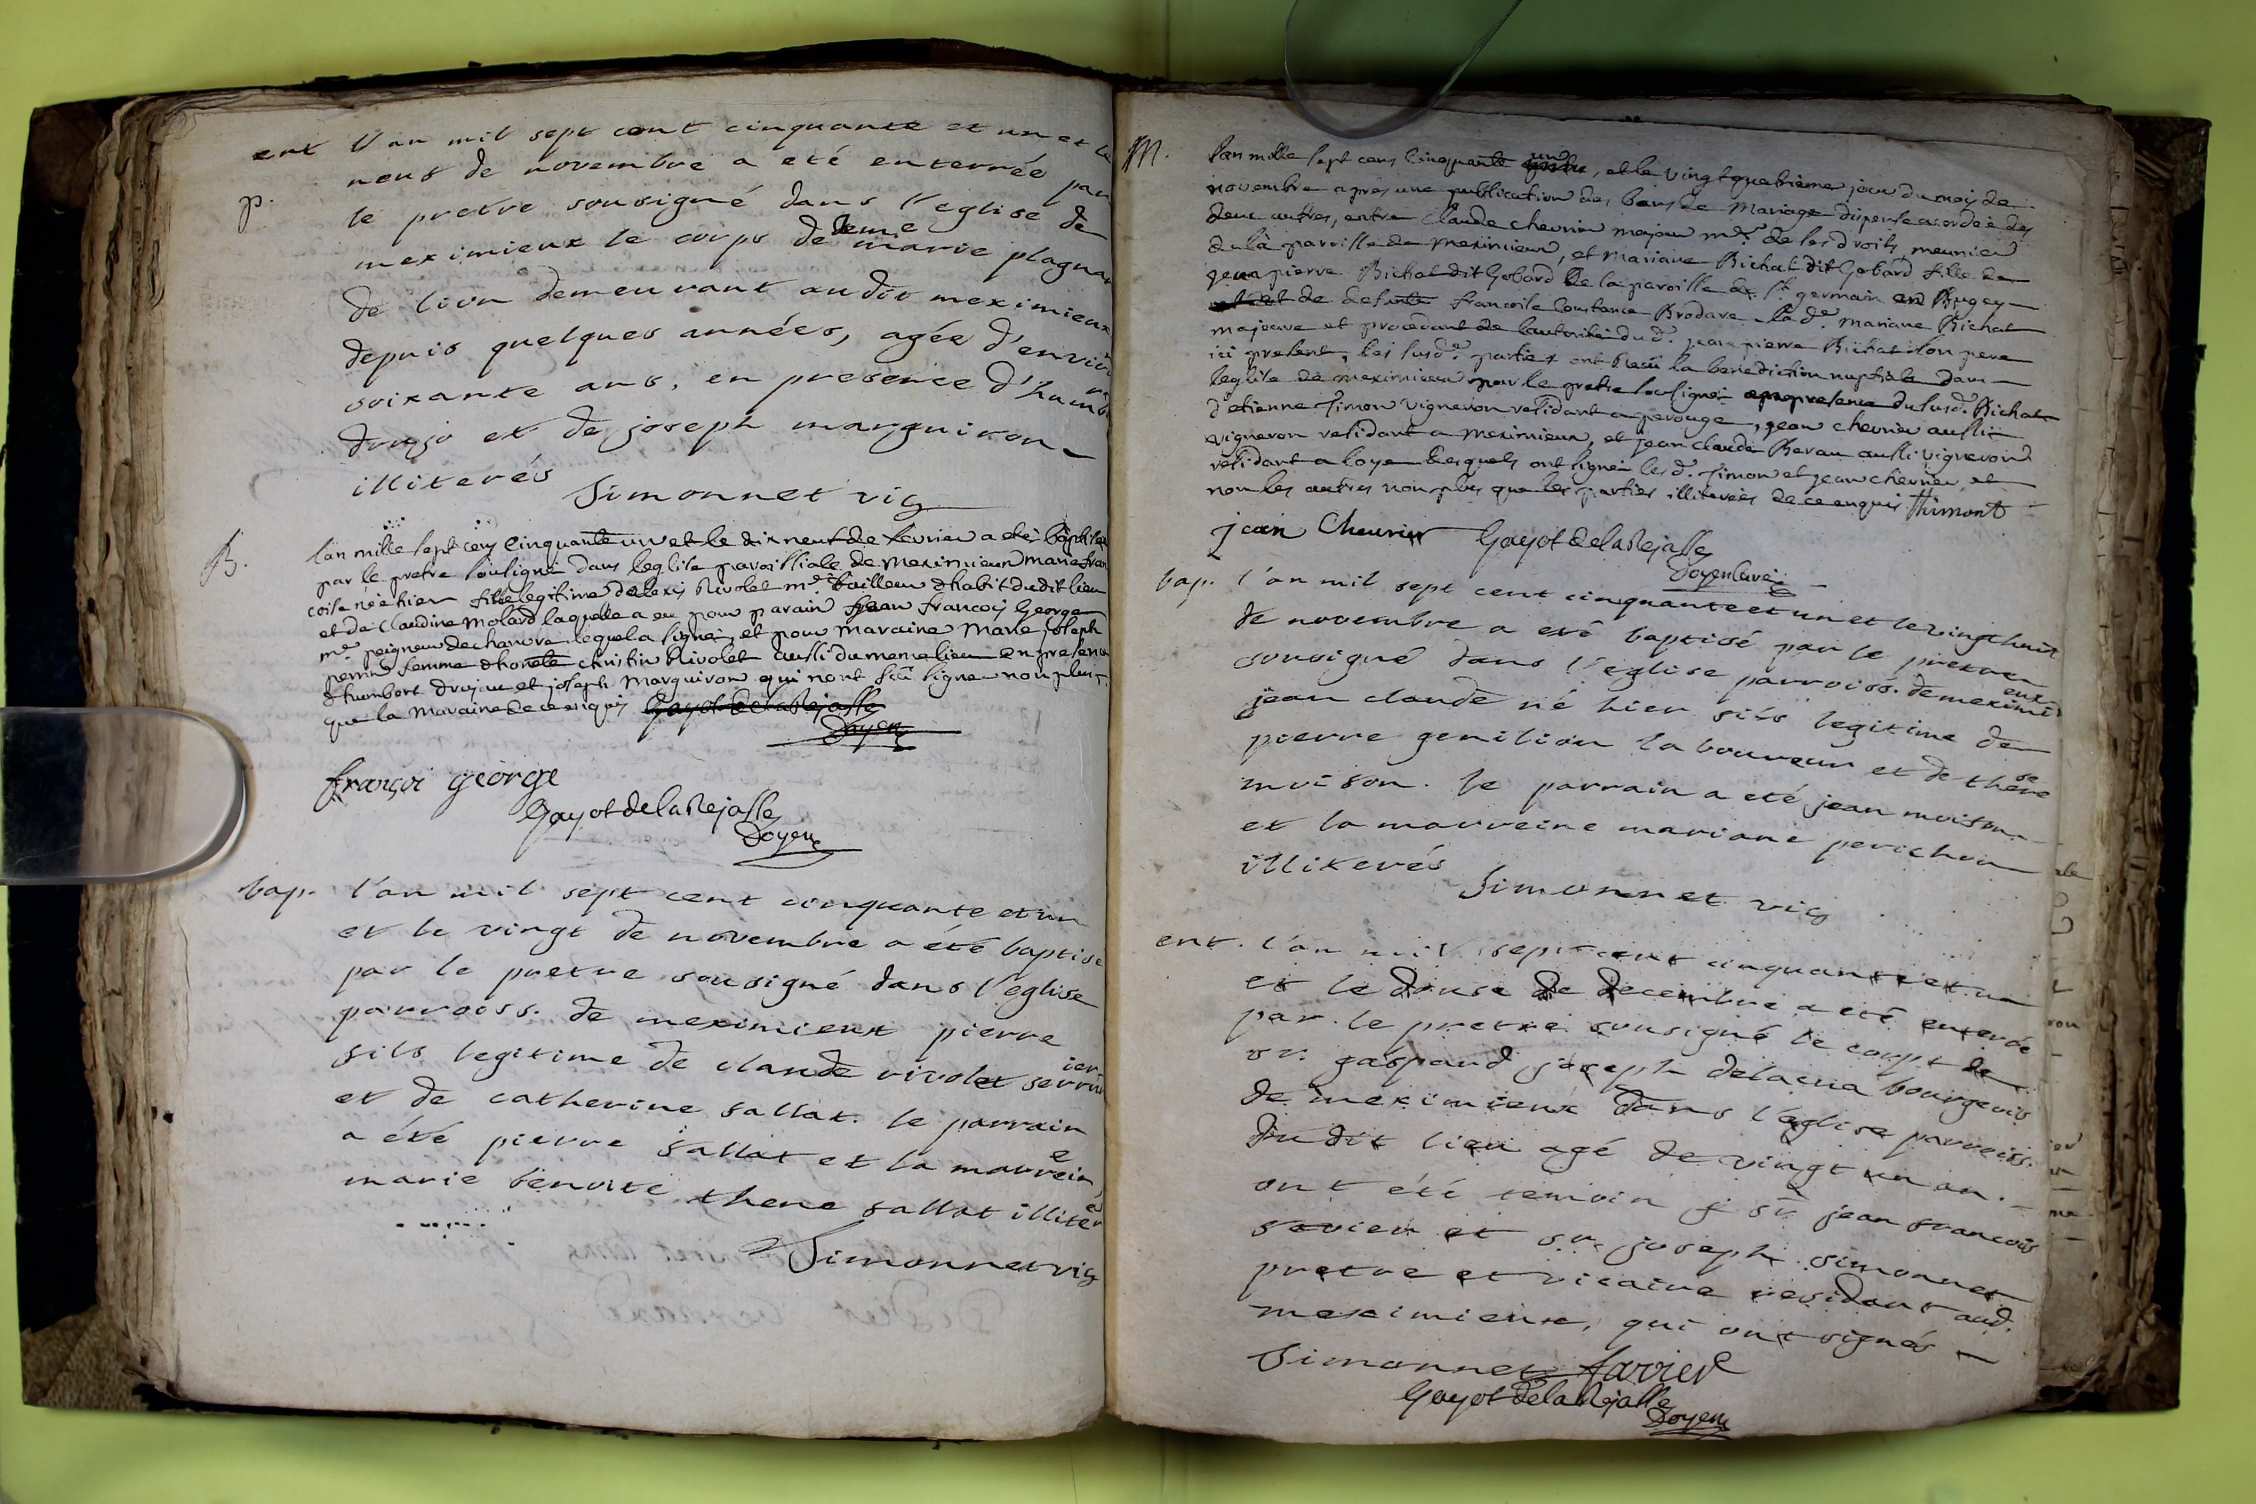 ent l'an mil sept cent cinquante et un et le
neuf de novembre a eté enterrée par
p. le pretre sousigné dans l'eglise de
meximieux le corps de deme marie plagnar
de lion demeurant audit meximieux
depuis quelques années, agée d'environ
soixante ans, en presence d'humb
drujo et de joseph marguiron
illiterés Simonnet vic
B. lan mille sept cens cinquante un et le dix neuf de fevrier a eté baptisée
par le pretre sousigné dans leglise paroissiale de Meximieux marie fran
coise née hier fille legitime dalexis Rivolet me tailleur dhabit dudit lieu
et de Claudine Molard laquelle a eu pour parain jean francois George
me peigneur de chanvre lequel a signé, et pour maraine Marie joseph
perrin femme dhonete christin Rivolet aussi du meme lieu en presence
dhumbert drujou et joseph Marguiron qui nont sçu signer non plus
que la Maraine de ce enquis Gayot de la Rejasse
Doyen
françoi george
Gayot de la Rejasse
Doyen
bap. l'an mil sept cent cinquante et un
et le vingt de novembre a été baptisé
par le pretre sousigné dans l'eglise
parroiss. de meximieux pierre
fils legitime de claude rivolet serrurier
et de catherine sallat. le parrain
a été pierre sallat et la marreine
marie benoite thene sallat illiterés
Simonnet vic
M. lan mille sept cens Cinquante un, et le vingt quatrieme jour du mois de
novembre apres une publication des bans de Mariage dispense acordée des
deux autres, entre Claude chevrier majeur me de ses droits, meunier
de la paroisse de Meximieux, et Mariane Bichat dit Gobard fille de
jean pierre Bichat dit Gobard de la paroisse de st germain en Bugey
et de defunte francoise Constance Brodare la de. Mariane Bichat
majeure et procedant de lautorité du d. jean pierre Bichat son pere
ici present, les susd. parties ont reçu la benediction nuptiale dans
leglise de Meximieux par le pretre sousigné en presence du susd. Bichat
d'etienne Simon vigneron residant a perouge, jean chevrier aussi
vigneron residant a Meximieux, et jean claude Beran aussi vigneron
residant a loye lesquels ont signé les d. Simon et jean chevrier et
non les autres non plus que les parties illiterées de ce enquis thimont
jean Cheurier Gayot de la Rejasse
Doyen curé
bap. l'an mil sept cent cinquante et un et le vingt huit
de novembre a eté baptisé par le pretre
sousigné dans l'eglise parroiss. de meximieux
jean claude né hier fils legitime de
pierre genilion laboureur et de therese
moison. le parrain a eté jean moison
et la marreine mariane perichon
illiterés Simonnet vic
ent. l'an mil sept cent cinquante et un
et le douse de decembre a eté enterré
par le pretre sousigné le corps de
sr. gaspard joseph delacua bourgeois
de meximieux dans l'eglise parroiss.
du dit lieu agé de vingt un an.
ont été temoin sr jean francois
favier et sr. joseph simonnet
pretre et vicaire residant aud.
meximieux, qui ont signés
Simonnet favier
Gayot de la Rejasse
Doyen